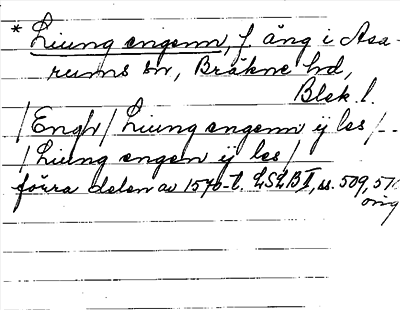 * Liung engenn, f. äng i Asa-
rums sn, Bräkne hd,
Blek. l.
/Engh/ Liung engenn ij les/--
/Liung engen ij les/
förra delen av 1570-t. LSLB I, ss. 509, 510
orig